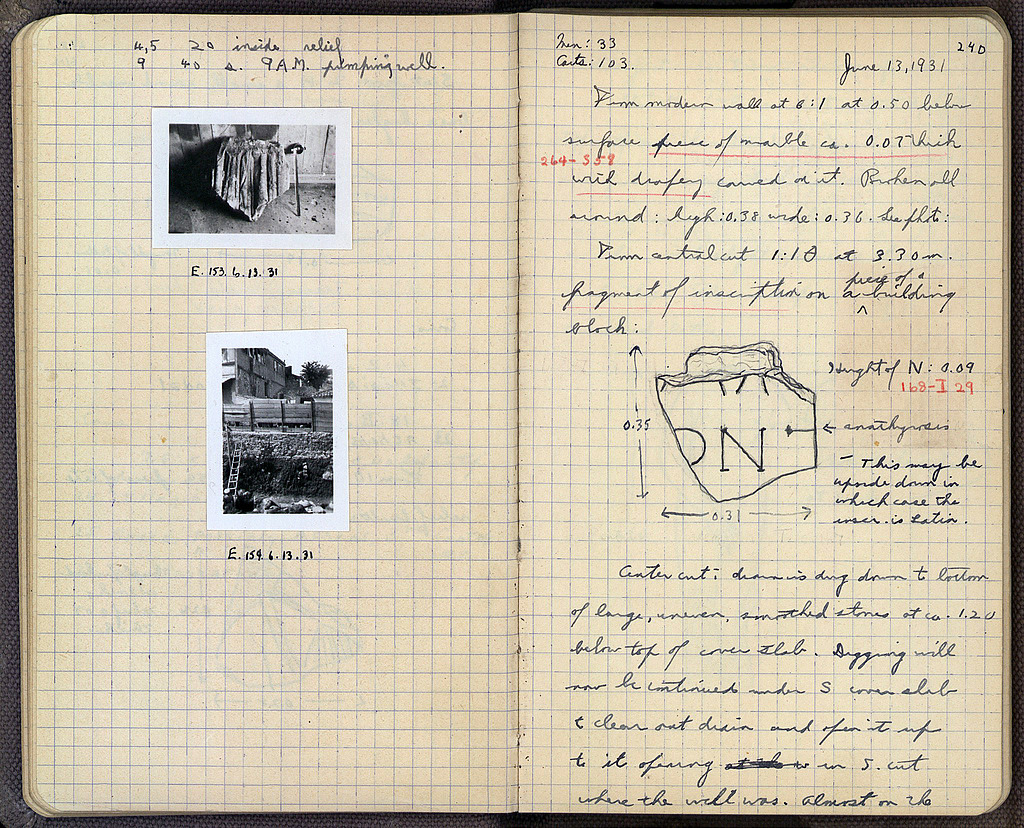 4,5 20 inside relief
9 40 s. 9 A.M. pumping well.
E. 153. 6. 13. 31
E. 154. 6. 13. 31
Men: 33
Carts: 103.
240
June 13, 1931
From modern wall at 8:1 at 0.50 below
surface piece of marble ca. 0.07 thick
264 - S 58
with drapery carved on it. Broken all
around: high: 0.38 wide: 0.36. See photo:
From central cut 1:1 Θ at 3.30 m.
piece of a
fragment of inscription on a building
^
block:
height of N: 0.09
168 - I 29
0.35
N
← anathyrosis
- This may be
upside down in
which case the
inscr. is Latin.
0.31
Center cut: drain is dug down to bottom
of large, uneven, smoothed stones at ca. 1.20
below top of cover slab. Digging will
now be continued under S cover slab
t clear out drain and open it up
to it opening in S. cut
where the well was. Almost on the